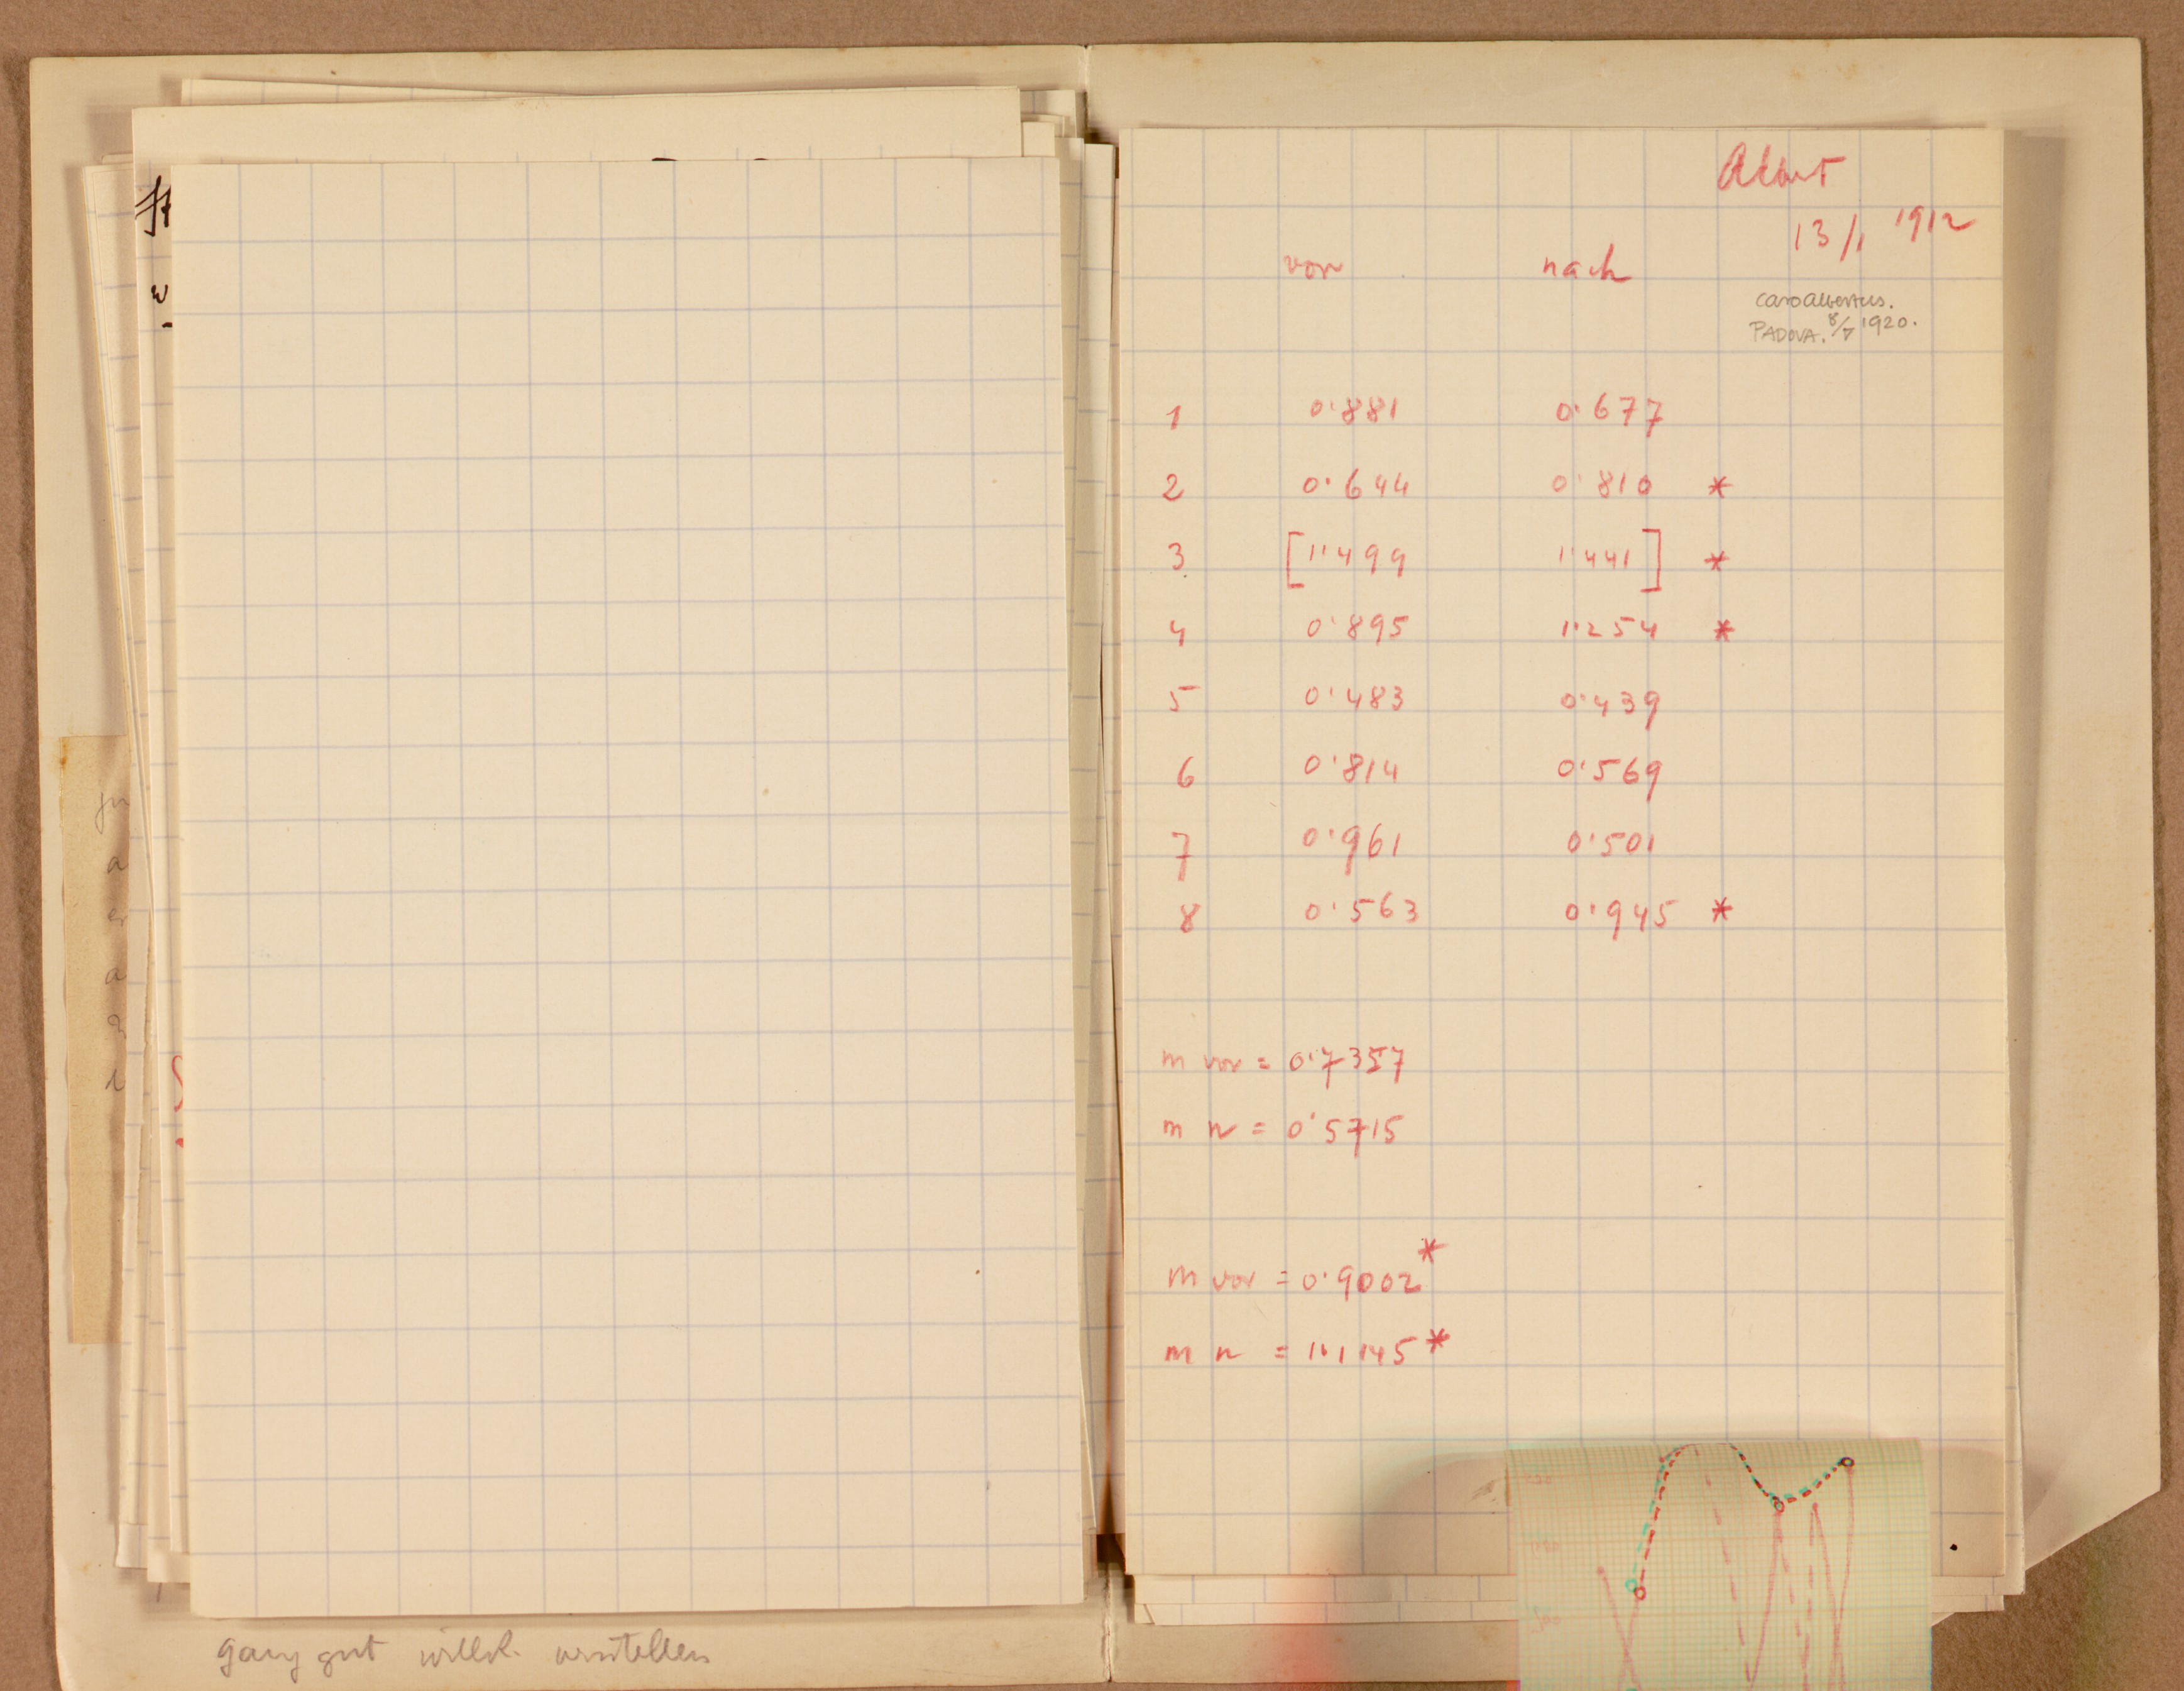 13/1 1912
vor nach
caroalbertus.
PADOVA. 8/7 1920.
1 0·881 0·677
2 0·644 0·810 *
3 [1·499 1·441] *
4 0·895 1·254 *
5 0·483 0·439
6 0·814 0·569
7 0·961 0·501
8 0·563 0·945 *
m vor = 0·7357
m n = 0·5715
m vor = 0·9002*
m n = 1·1145*
ganz gut willk.